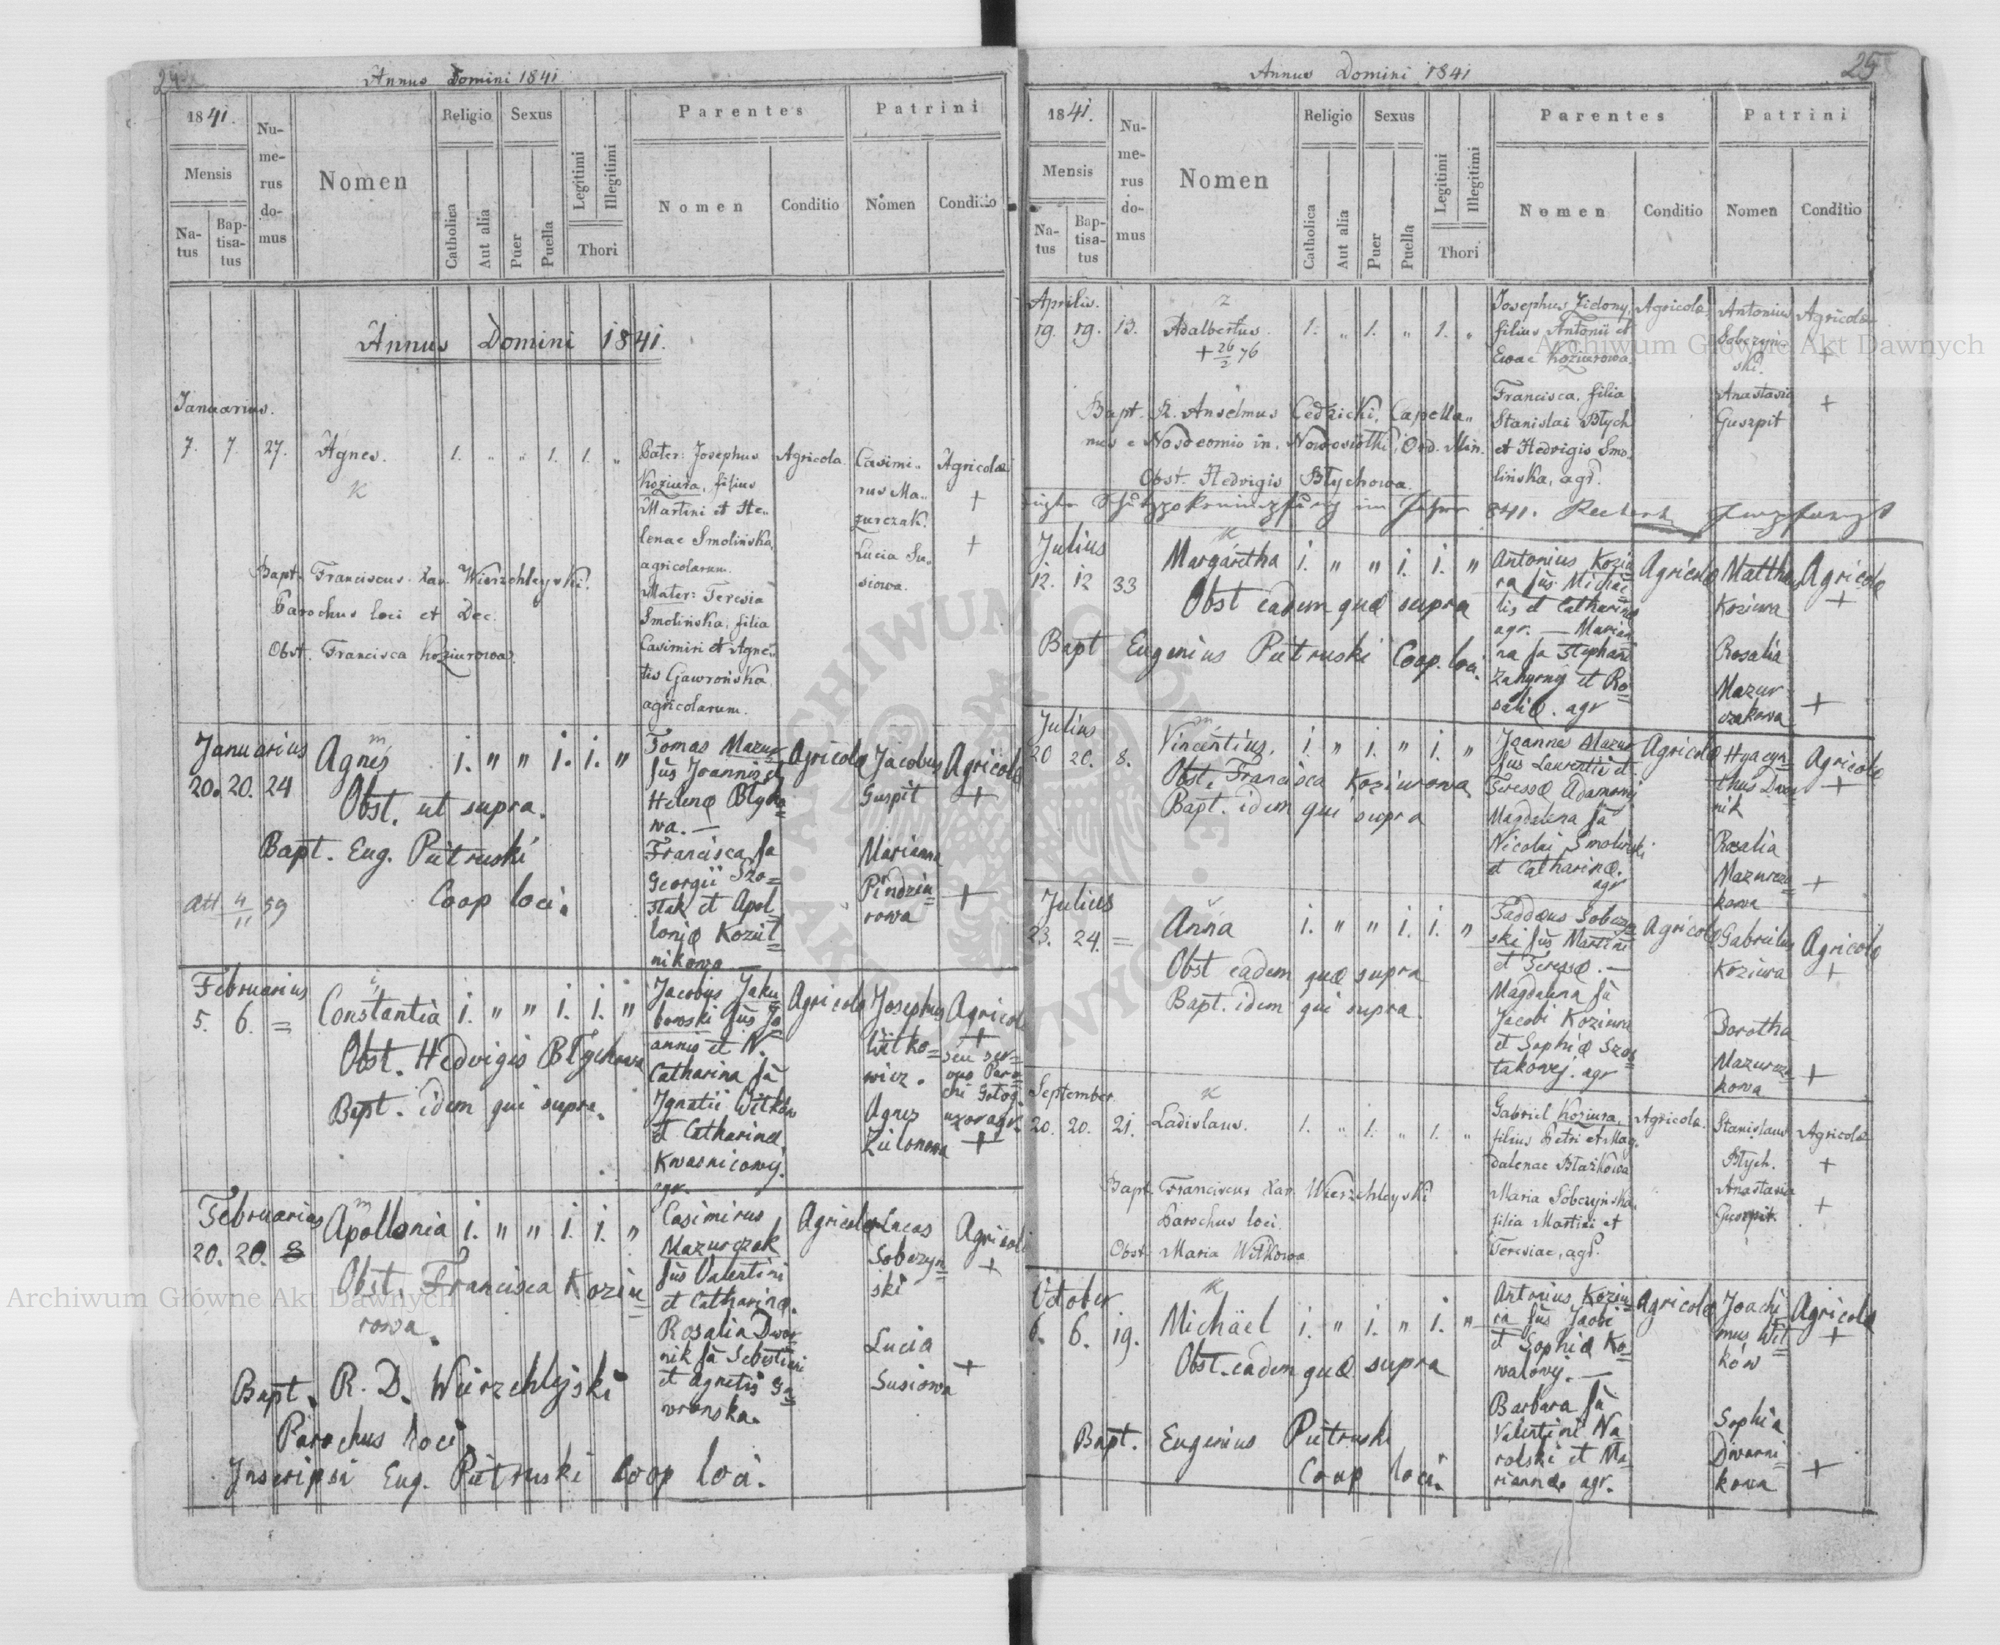 24
Annus Domini 1841
1841.
Mensis
Natus
Baptisatus
Numerus domus
Nomen
Religio
Catholica
Aut alia
Sexus
Puer
Puella
Legitimi
Illegitimi
Thori
Parentes
Nomen
Conditio
Patrini
Nomen
Conditio
Annus Domini 1841.
Januarius.
7. 7. 27. Agnes. 1. „ „ 1. 1. „
K
Pater: Josephus
Koziura, filius
Martini et He-
lenae Smolińska,
agricolarum.
Mater: Teresia
Smolińska, filia
Casimiri et Agne-
tis Gawrońska
agricolarum.
Agricola
Casimi-
rus Ma-
zurczak.
Lucia Su-
siowa.
Agricolae
+
+
Bapt. Franciscus Xav. Wierzchleyski.
Parochus loci et Dec.
Obst. Francisca Koziurowa.
Januarius
20. 20. 24 Agnes i. „ „ i. i. „
m
Obst. ut supra.
Bapt. Eug. Pietruski
Coop loci.
4/11 59
Tomas Mazur
fus Joannis et
Helenæ Błycho
wa. —
Francisca fa
Georgii Szo=
stak et Apol
loniæ Koziel
nikowa —
Agricolæ
Jacobus
Guspit
Marianna
Pindziu
rowa
Agricolæ
+
+
Februarius
5. 6. = Constantia i. „ „ i. i. „
Obst. Hedvigis Błychowa
Bapt. idem qui supra.
Jacobus Jaku
bowski fus Jo
annis et N.
Catharina fa
Ignatii Witków
et Catharinæ
Kwasnicowy.
agr.
Agricolæ
Josephus
Witko=
wicz.
Agnes
Zielonowa
Agricolæ
+
seu ser=
vus Paro=
chi
uxor agr.
+
Februarius
20. 20. 8 Apollonia i. „ „ i. i. „
m
Obst. Francisca Koziu=
rowa.
Bapt. R. D. Wierzchlejski
Parochus loci.
Inscripsi Eug. Pietruski Coop loci.
Casimirus
Mazurczak
fus Valentini
et Catharinæ.
Rosalia Dwor
nik fa Sebestiani
et Agnetis Ga
wronska.
Agricolæ
Lucas
Sobczyn=
ski
Lucia
Susiowa
Agricolæ
+
+
25
Annus Domini 1841
1841.
Mensis
Natus
Baptisatus
Numerus domus
Nomen
Religio
Catholica
Aut alia
Sexus
Puer
Puella
Legitimi
Illegitimi
Thori
Parentes
Nomen
Conditio
Patrini
Nomen
Conditio
Aprilis.
19. 19. 13. Adalbertus. 1. „ 1. „ 1. „
z
+ 26/2 76
Josephus Zielony,
filius Antonii et
Evae Koziurowa.
Francisca, filia
Stanislai Błych
et Hedvigis Smo-
linska, agr.
Agricolæ
Antonius
Sobczyn-
ski.
Anastasia
Guszpit
Agricolæ
+
+
Bapt. R. Anselmus Cedzicki, Capella-
nus e Nosocomio in Nowosiołki, Ord. Min.
Obst. Hedvigis Błychowa.
im Jahre 841.
Julius
12. 12 33 Margaretha i. „ „ i. i. „
K
Obst eadem quæ supra
Bapt Eugenius Pietruski Coop. loci.
Antonius Koziu
ra fus Michae
lis et Catharinæ
agr. — Marian
na fa Stephani
Zahyrny et Ro=
saliæ. agr
Agricolæ
Matthæus
Koziura
Rosalia
Mazur
czakowa
Agricolæ
+
+
Julius
20 20. 8. Vincentius. i. „ i. „ i. „
m
Obst. Francisca Koziurowa
Bapt. idem qui supra
Joannes Mazur
fus Laurentii et
Teressæ Adamowy
Magdalena fa
Nicolai Smolinski
et Catharinæ.
agr
Agricolæ
Hyacyn=
thus Dwor=
nik
Rosalia
Mazurcza=
kowa
Agricolæ
+
+
Julius
23. 24. = Anna i. „ „ i. i. „
Obst eadem quæ supra
Bapt. idem qui supra
Taddæus Sobczyn
ski fus Martini
et Teressæ. —
Magdalena fa
Jacobi Koziura
et Sophiæ Szos
takowej. agr
Agricolæ
Gabrielus
Koziura
Dorotha
Mazurcza=
kowa
Agricolæ
+
+
September
20. 20. 21. Ladislaus. 1. „ 1. „ 1. „
K
Bapt. Franciscus Xav. Wierzchleyski
Parochus loci.
Obst. Maria Witkowa
Gabriel Koziura,
filius Petri et Mag-
dalenae Błażkowa
Maria Sobczyńska,
filia Martini et
Teresiae, agr.
Agricolæ
Stanislaus
Błych.
Anastasia
Guszpit.
Agricolæ
+
+
October
6. 6. 19. Michäel i. „ i. „ i. „
K
Obst. eadem quæ supra
Bapt. Eugenius Pietruski
Coop loci.
Antonius Koziu=
ra fus Jacobi
et Sophiæ Ko=
walowy. —
Barbara fa
Valentini Na
rolski et Ma=
riannæ agr.
Agricolæ
Joachi
mus Wit=
ków
Sophia
Dwarni=
kowa
Agricolæ
+
+
Archiwum Główne Akt Dawnych
Archiwum Główne Akt Dawnych
ARCHIWUM GŁÓWNE AKT DAWNYCH